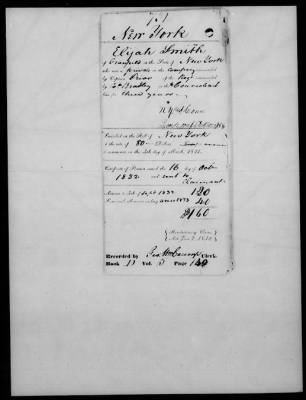 New York
Elijah Smith
of Granville in the State of New York
who was a private in the Company commanded
by Captain Prior of the Regt commanded
by Col Bradley in the Connecticut
line for three years
Inscribed on the Roll of New York
at the rate of 80 Dollars
to commence on the 4th day of March, 1831.
Certificate of Pension issued the 16 day of Octr
1832 and sent to
Claimant
Arrears to 4th of Sept 1832 120
Semi-anl. allowance ending 4 March 1833 40
$160
{ Revolutionary Claim }
{ Act June 7, 1832 }
Recorded by Clerk.
Book D Vol. Page